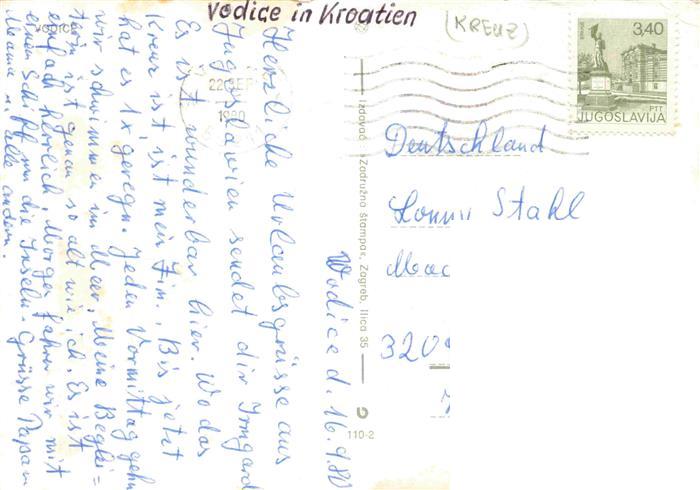 Vodice in Kroatien
(KREUZ)
Herzliche Urlaubsgrüsse aus
Jugoslawien sendet dir Irmgard
Es ist wunderbar hier. Wo das
Kreuz ist, ist mein Zim., Bis jetzt
hat es 1x geregn. Jeden Vormittag gehn
wir schwimmen im Meer, Meine Beglei=
terin ist genau so alt wie ich. Es ist
einfach herrlich, Morgen fahren wir mit
einem Schiff um die Inseln. Grüsse Papa u
Mama u. alle andern.
Vodice d. 16.9.80
22
1980
Izdavač „Zadružna štampa“, Zagreb, Ilica 35
110-2
3,40
PTT
JUGOSLAVIJA
Deutschland
Stahl
320